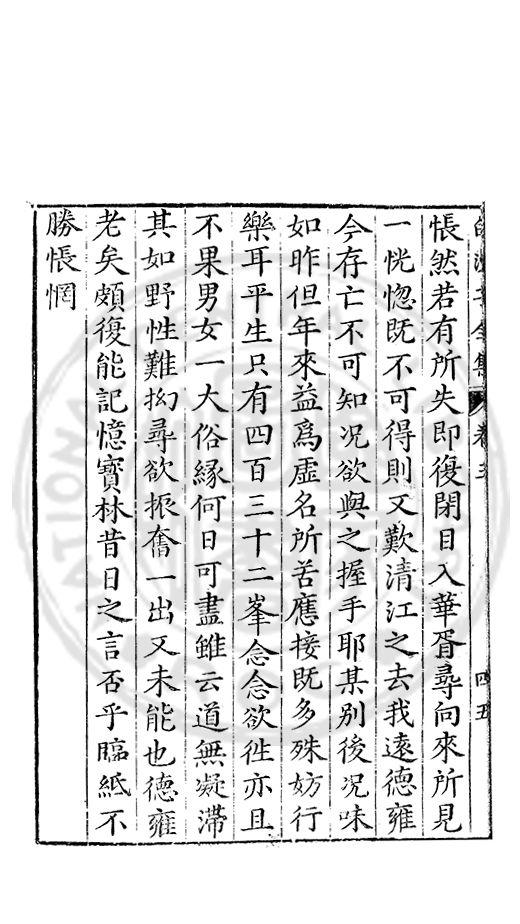 悵然若有所失即復閉目入華胥尋向來所見
一恍惚既不可得則又歎清江之去我遠德雍
今存亡不可知况欲與之握手耶某别後况味
如昨但年來益爲虛名所苦應接既多殊妨行
樂耳平生只有四百三十二峯念念欲徃亦且
不果男女一大俗緣何日可盡雖云道無凝滯
其如野性難拗尋欲振奮一出又未能也德雍
老矣頗復能記憶寳林昔日之言否乎臨紙不
勝悵惘